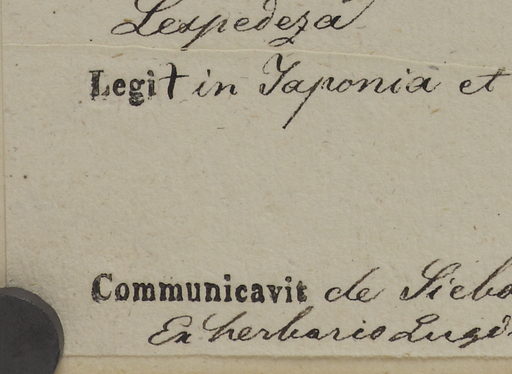 Lespedeza
Legit in Japonia et
Communicavit de Siebo
Ex herbario Lugd